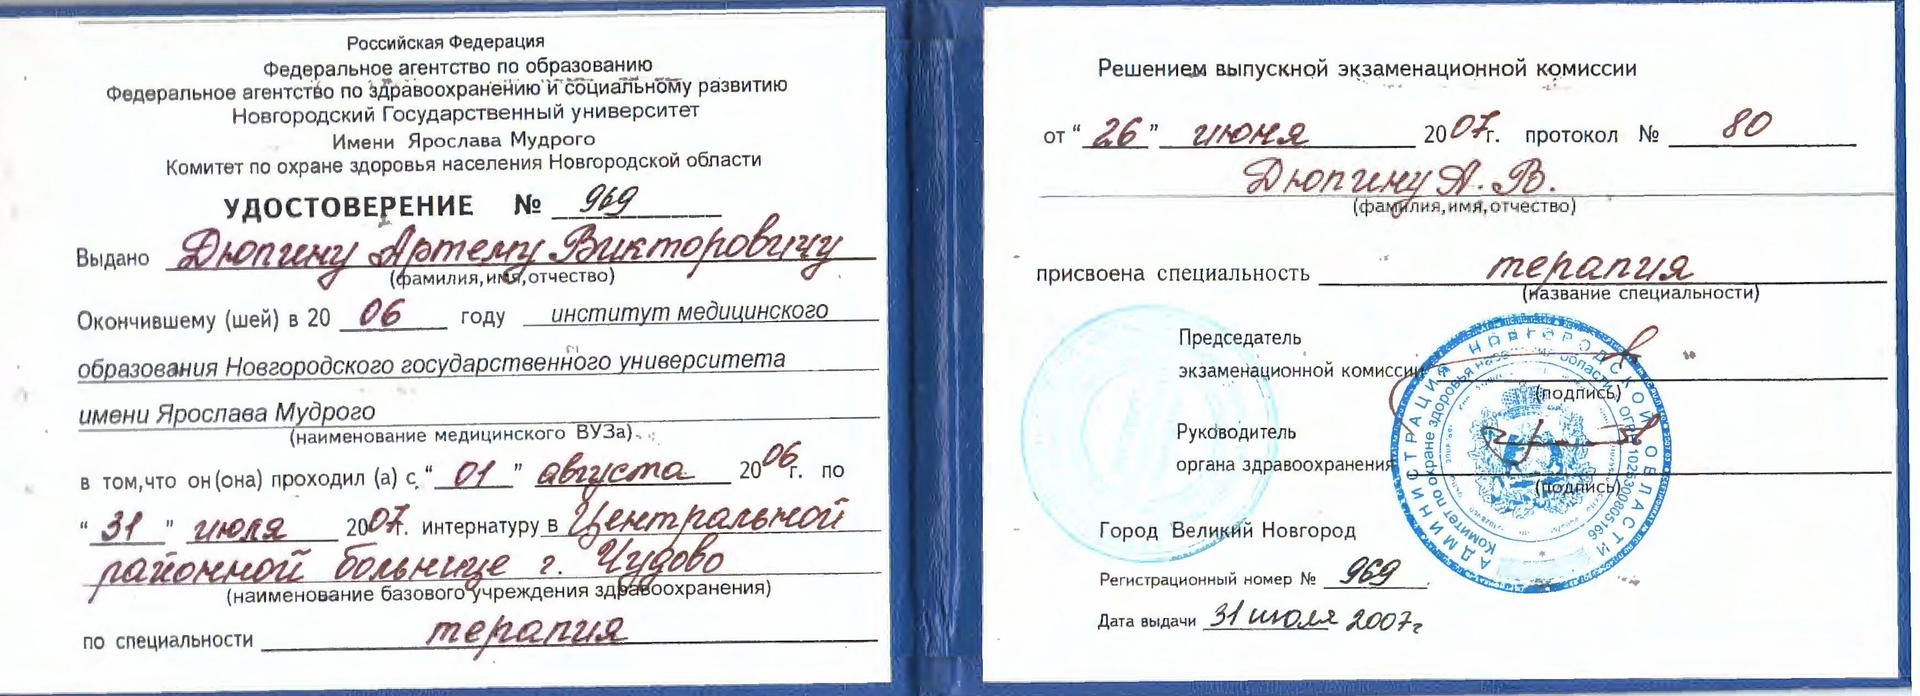 Российская Федерация
Федеральное агентство по образованию
Федеральное агентство по здравоохранению и социальному развитию
Новгородский Государственный университет
Имени Ярослава Мудрого
Комитет по охране здоровья населения Новгородской области
УДОСТОВЕРЕНИЕ № 969
Выдано Дюпину Артему Викторовичу
(фамилия,имя,отчество)
Окончившему (шей) в 20 06 году институт медицинского
образования Новгородского государственного университета
имени Ярослава Мудрого
(наименование медицинского ВУЗа)
в том,что он(она) проходил (а) с "01" августа 2006г. по
"31" июля 2007г. интернатуру в Центральной
районной больнице г. Чудово
(наименование базового учреждения здравоохранения)
по специальности терапия
Решением выпускной экзаменационной комиссии
от "26" июня 2007г. протокол № 80
Дюпину А. В.
(фамилия,имя,отчество)
присвоена специальность терапия
(название специальности)
Председатель
экзаменационной комиссии
(подпись)
Руководитель
органа здравоохранения
(подпись)
АДМИНИСТРАЦИЯ НОВГОРОДСКОЙ ОБЛАСТИ
Комитет по охране здоровья населения области
ОГРН 1025300805166
Город Великий Новгород
Регистрационный номер № 969
Дата выдачи 31 июля 2007г